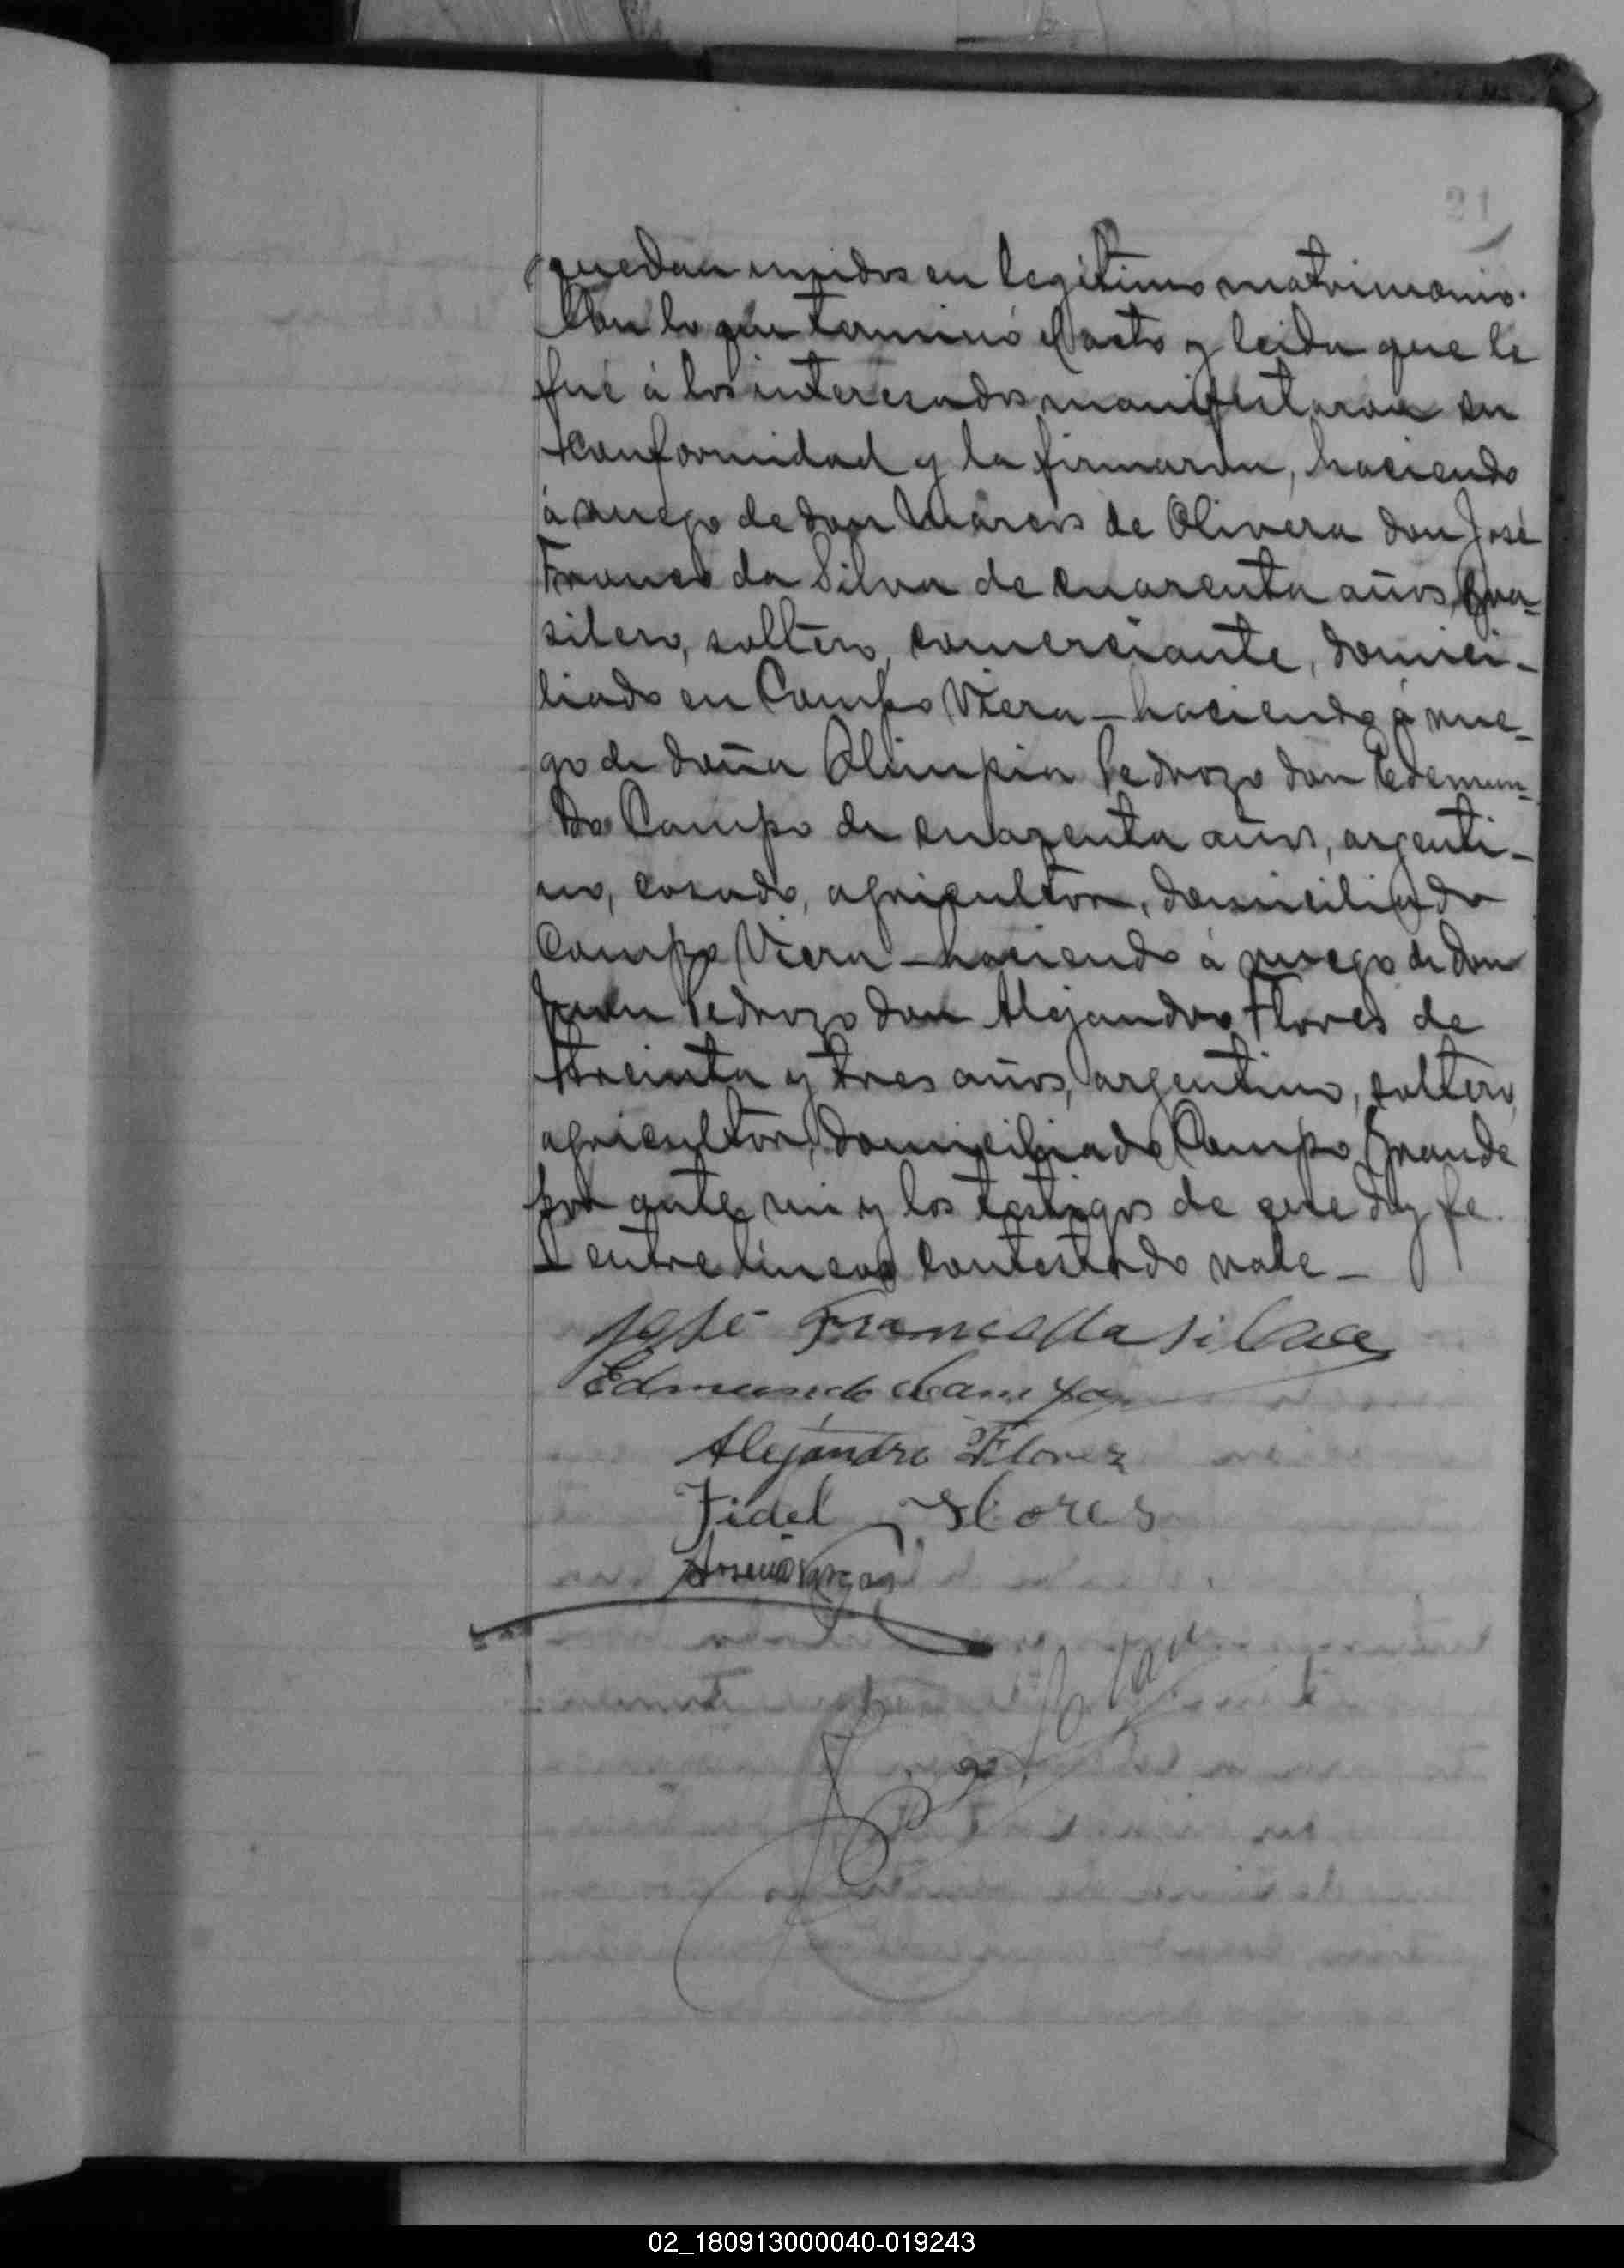 21
quedan unidos en legítimo matrimonio.
Con lo que terminó el acto y leida que le
fué á los interesados manifestaron su
conformidad y la firmaron, haciendo
á ruego de don Marcos de Olivera don José
Franco da Silva de cuarenta años, bra-
silero, soltero, comerciante, domici-
liado en Campo Viera – haciendo á rue-
go de doña Olimpia Pedrozo don Edemun-
do Campo de cuarenta años, argenti-
no, casado, agricultor, domiciliado
Campo Viera – haciendo á ruego de don
Juan Pedrozo don Alejandro Flores de
treinta y tres años, argentino, soltero,
agricultor, domiciliado Campo Grande
por ante mi y los testigos de que doy fe.
entre lineas contestado vale –
José Franco da Silva
Edmundo Campo
Alejándro Florez
Fidel Flores
Arsenio Vargas
02_180913000040-019243